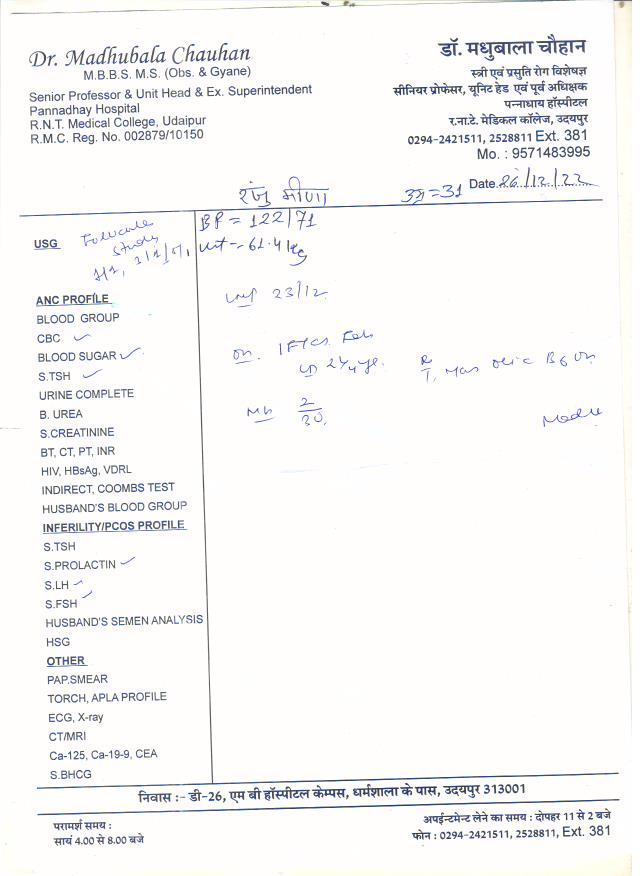 Dr. Madhubala Chauhan
M.B.B.S. M.S. (Obs. & Gyane)
Senior Professor & Unit Head & Ex. Superintendent
Pannadhay Hospital
R.N.T. Medical College, Udaipur
R.M.C. Reg. No. 002879/10150
डॉ. मधुबाला चौहान
स्त्री एवं प्रसुति रोग विशेषज्ञ
सीनियर प्रोफेसर, यूनिट हेड एवं पूर्व अधिक्षक
पन्नाधाय हॉस्पीटल
र.ना.टे. मेडिकल कॉलेज, उदयपुर
0294-2421511, 2528811 Ext. 381
Mo. : 9571483995
रंजु मीणा
उम्र = 31
Date 26/12/22
BP = 122/71
wt - 61.4 kg
USG
Follicular
Study
ANC PROFILE
BLOOD GROUP
CBC
BLOOD SUGAR
S.TSH
URINE COMPLETE
B. UREA
S.CREATININE
BT, CT, PT, INR
HIV, HBsAg, VDRL
INDIRECT, COOMBS TEST
HUSBAND'S BLOOD GROUP
INFERILITY/PCOS PROFILE
S.TSH
S.PROLACTIN
S.LH
S.FSH
HUSBAND'S SEMEN ANALYSIS
HSG
OTHER
PAP.SMEAR
TORCH, APLA PROFILE
ECG, X-ray
CT/MRI
Ca-125, Ca-19-9, CEA
S.BHCG
LMP 23/12
MH 2/30
निवास :- डी-26, एम बी हॉस्पीटल केम्पस, धर्मशाला के पास, उदयपुर 313001
परामर्श समय :
सायं 4.00 से 8.00 बजे
अपईन्टमेन्ट लेने का समय : दोपहर 11 से 2 बजे
फोन : 0294-2421511, 2528811, Ext. 381